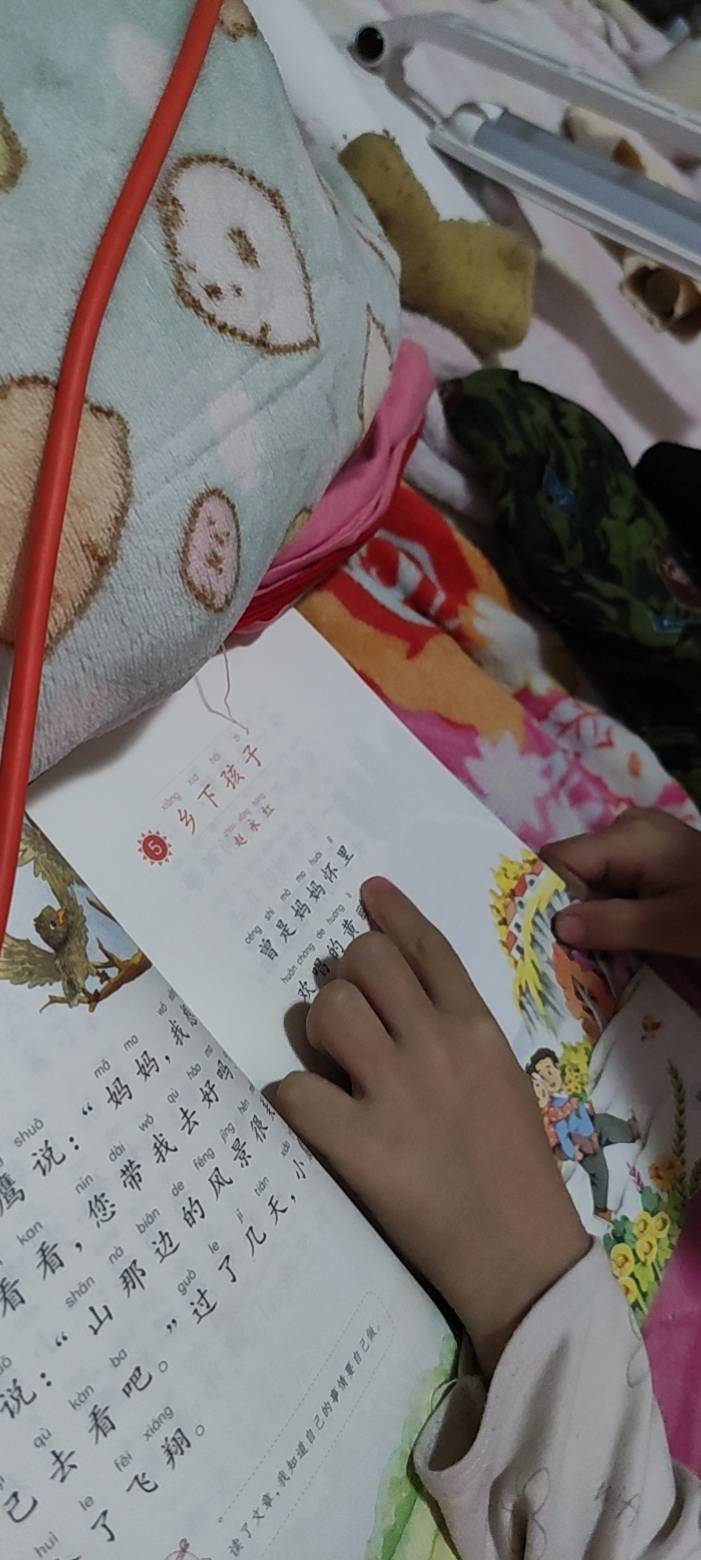 shuō mā ma
说：“妈妈，我
kan nín dài wǒ qù hǎo
看看，您带我去好吗
shān nà biān de fēng jǐng hěn
说：“山那边的风景很
qù kàn ba guò le jǐ tiān
己去看吧。”过了几天，小
huí le fēi xiáng
了飞翔。
读了文章，我知道自己的事情要自己做。
5 乡下孩子
céng shì mā ma huái lǐ
曾是妈妈怀里
huān chàng de huáng
欢唱的黄